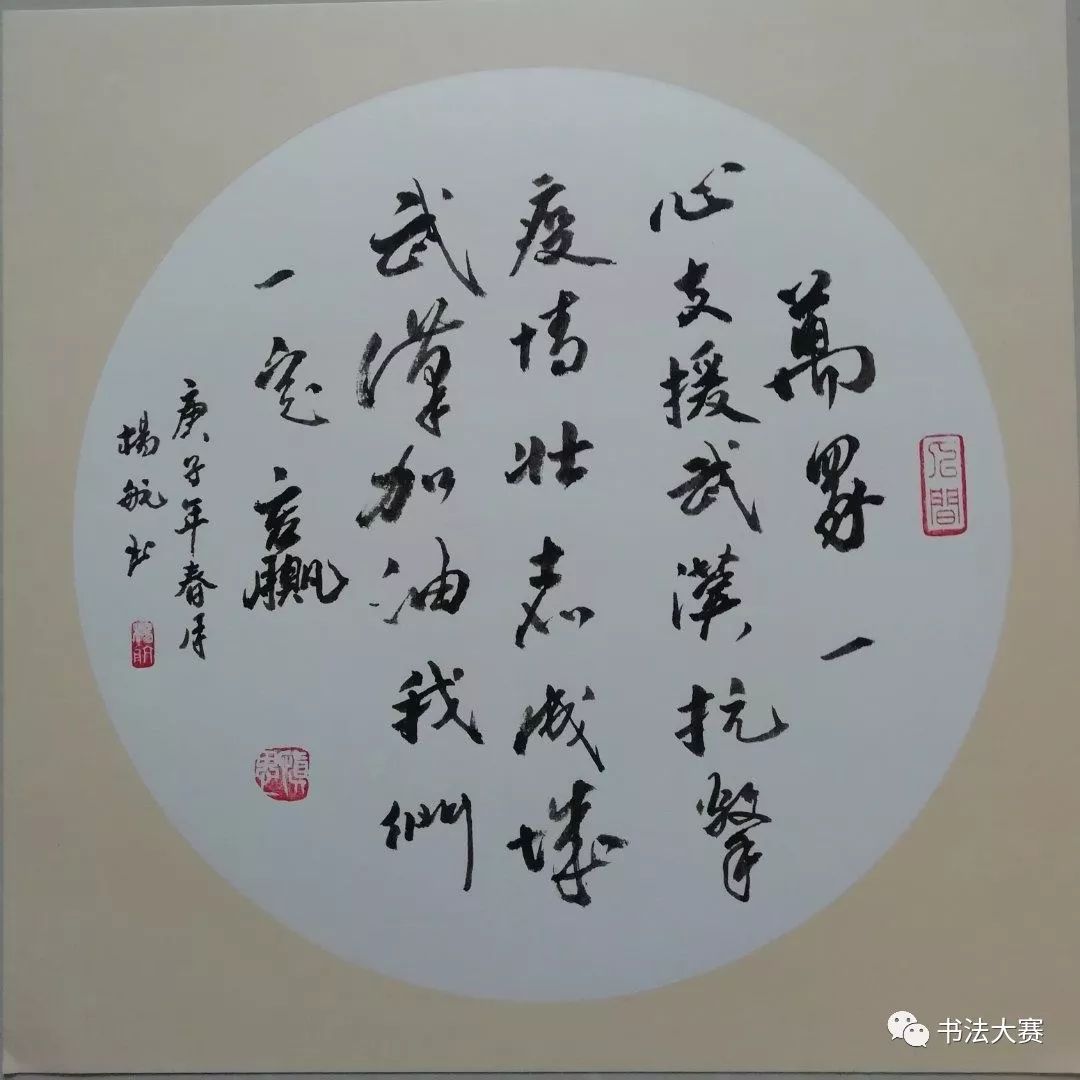 萬眾一
心支援武漢抗擊
疫情壯志成城
武漢加油我們
一定贏
庚子年春月
楊航书
书法大赛